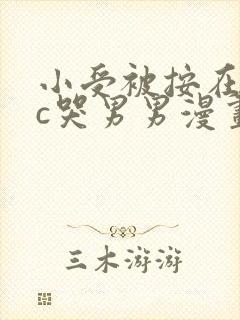 小受被按在
c哭男男漫畫
三木游游